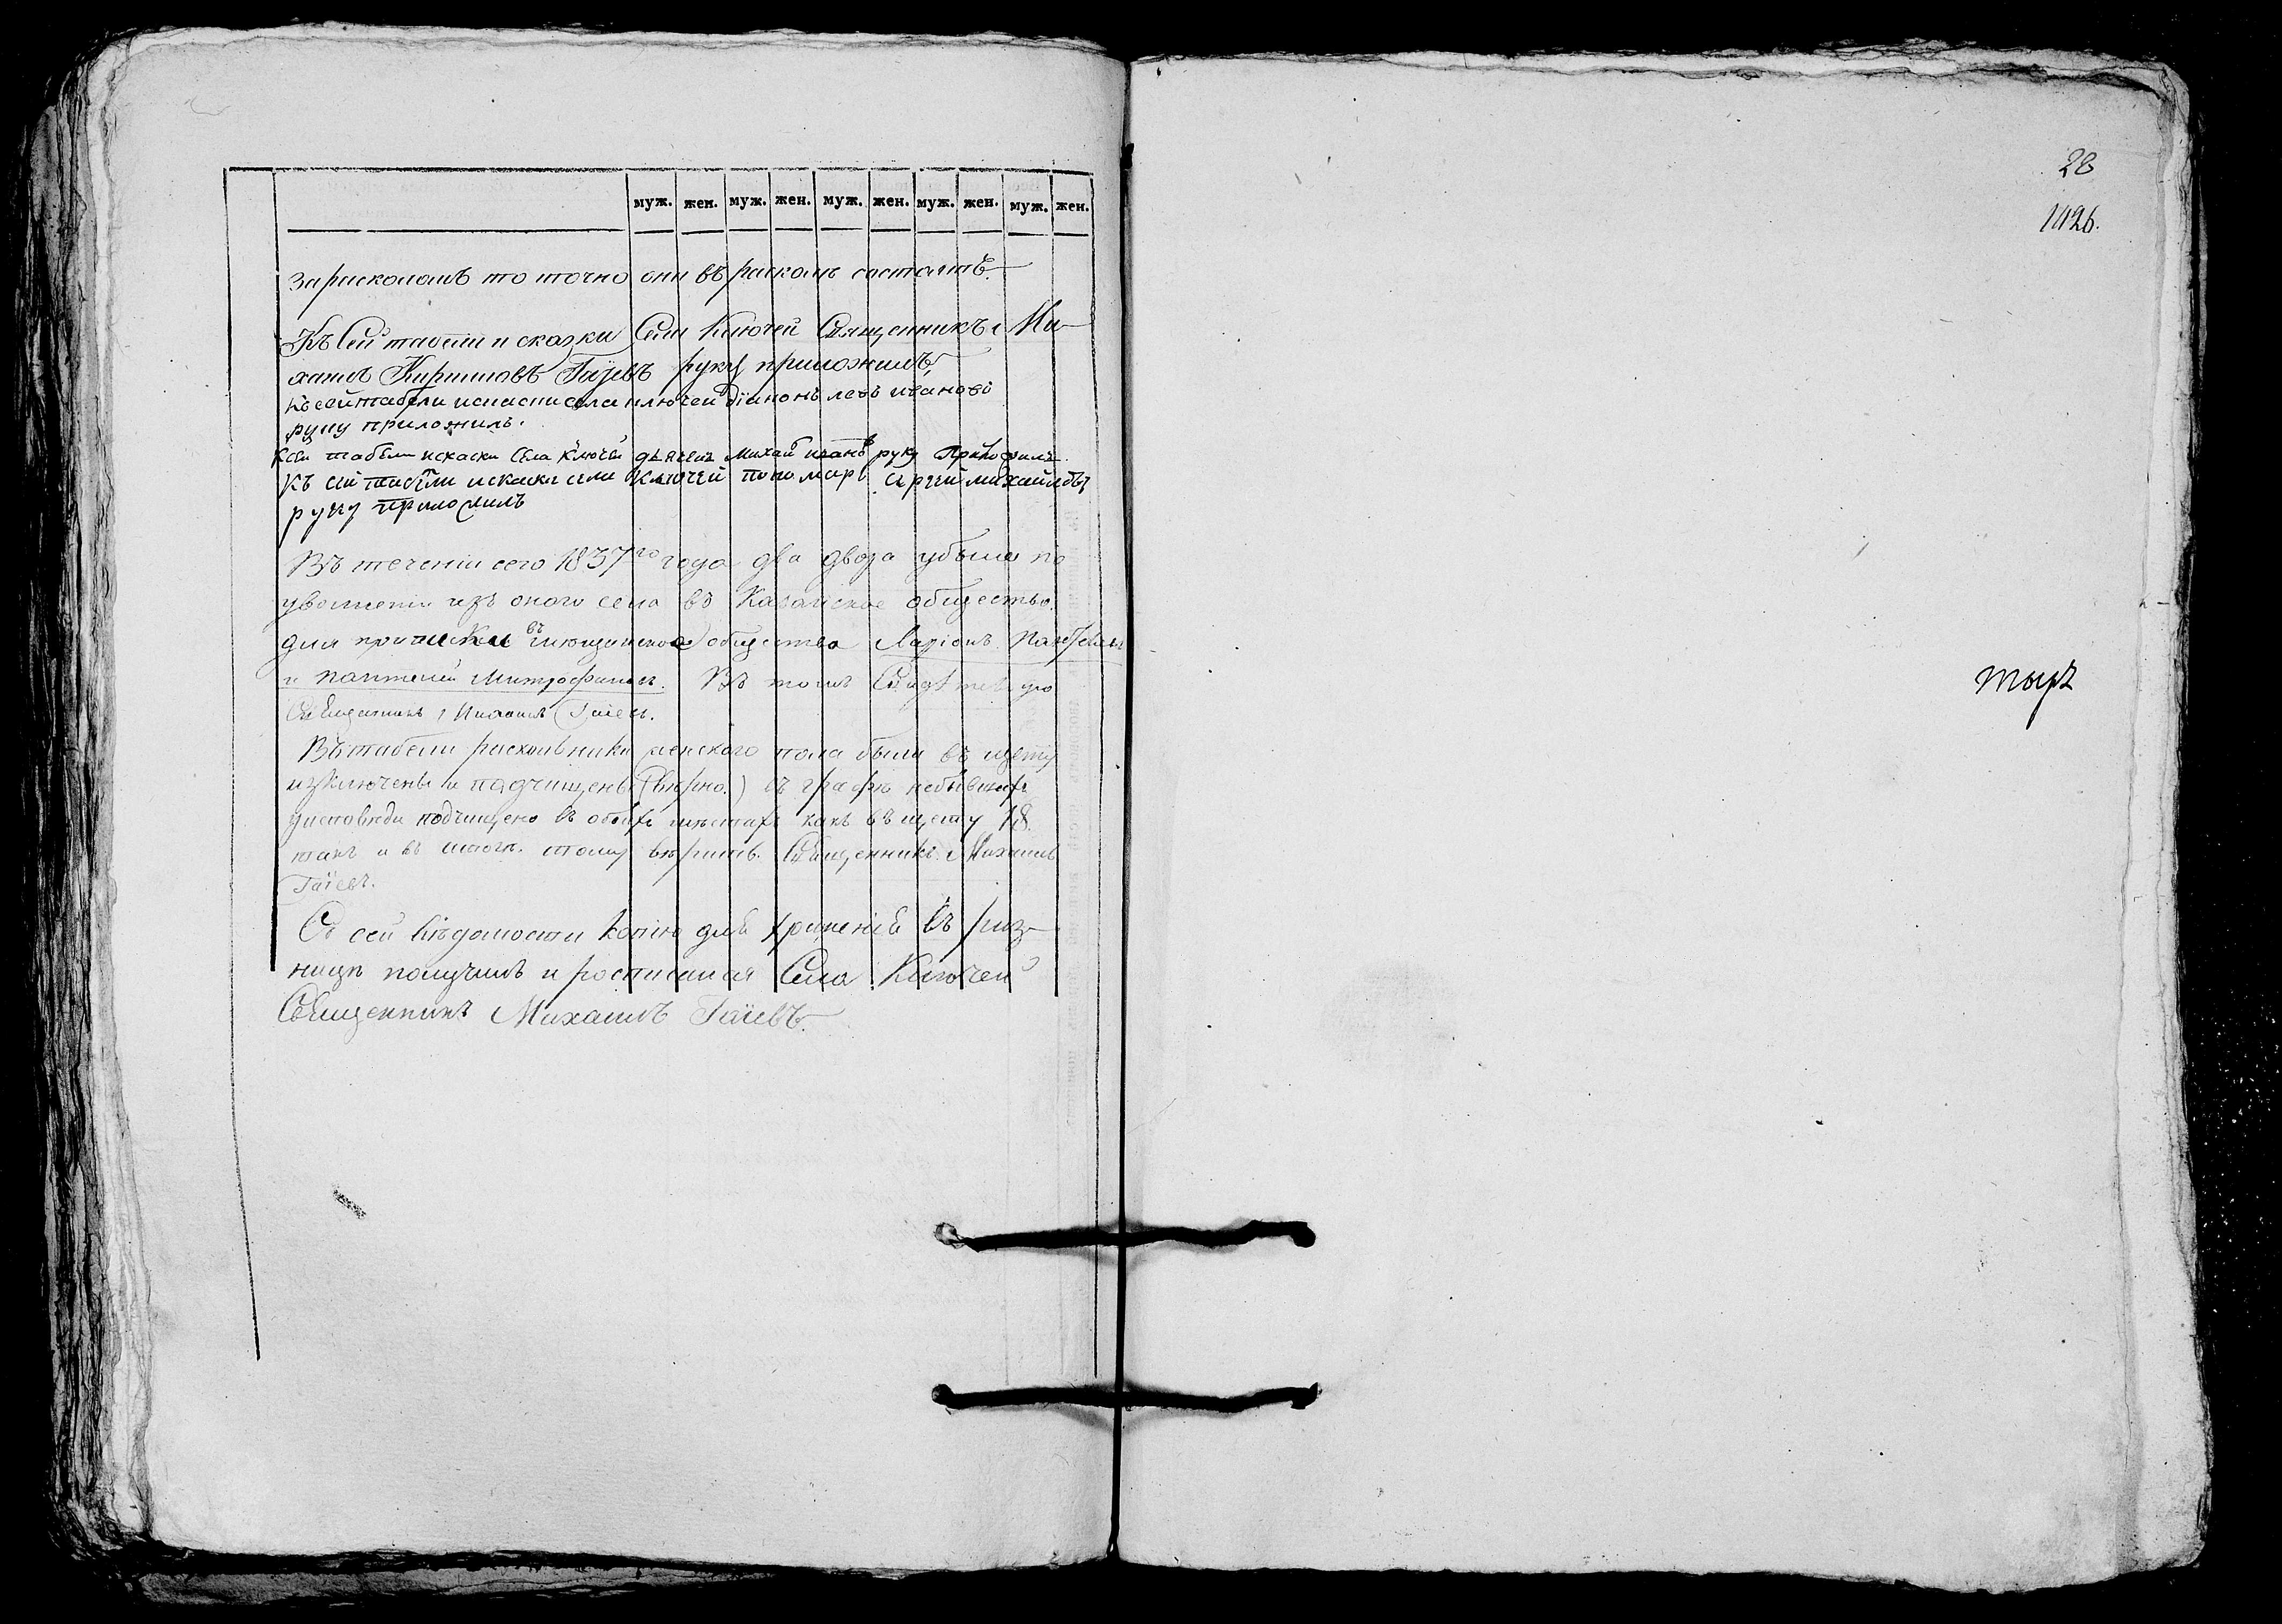 муж. жен. муж. жен. муж. жен. муж. жен. муж. жен.
за расколомъ то точно они въ расколѣ состоятъ.
Къ Сей табели и сказки Села Ключей Священникъ Ми-
хаилъ Кириловъ Гаіевъ руку приложилъ,
къ сей табели искаски села ключей діаконъ левъ ивановъ
руку приложилъ.
Ксеи табели искаски Села Ключеи дьячекъ Михаи иванъ руку Приложилъ
Къ сей табели искаски сели Ключей пономарь Сергей михайловъ
руку приложилъ
Въ теченіи сего 1837го года два двора убыло по
уволненіи изъ оного села въ общество
для приписки въ общества Ларіонъ
и Пантелей Митрофановъ. Въ томъ Свидѣтельствую
Священникъ Михаилъ Гаіевъ.
Въ табели раскольники женского пола были въ щету
изключены и подчищены (вѣрно.) въ графѣ небывшихъ
уисповѣди подчищено въ обоихъ мѣстахъ какъ въ щету 18.
такъ и въ итогѣ. тому вѣрить. Священникъ Михаилъ
Гаіевъ.
Съ сей вѣдомости копію для храненія въ риз-
ницѣ получилъ и росписался Села Ключей
Священникъ Михаилъ Гаіевъ.
28
1426.